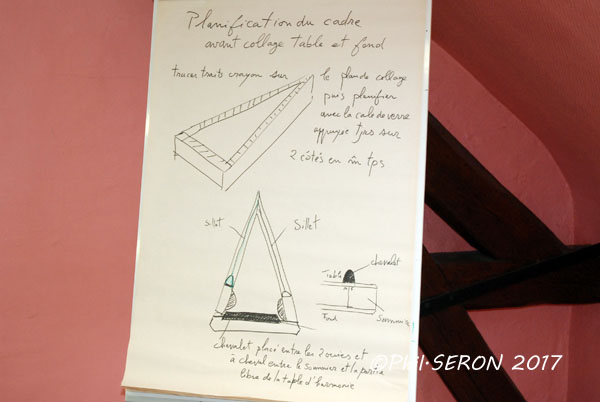 Planification du cadre
avant collage table et fond
tracer traits crayon sur le plan de collage
puis planifier
avec la cale de verre
appuyée tjrs sur
2 côtés en m̂ tps
sillet
Sillet
chevalet
Table
Fond
Sommier
chevalet placé entre les 2 ouies et
à cheval entre le sommier et la partie
libre de la table d'harmonie
©PHI·SERON 2017